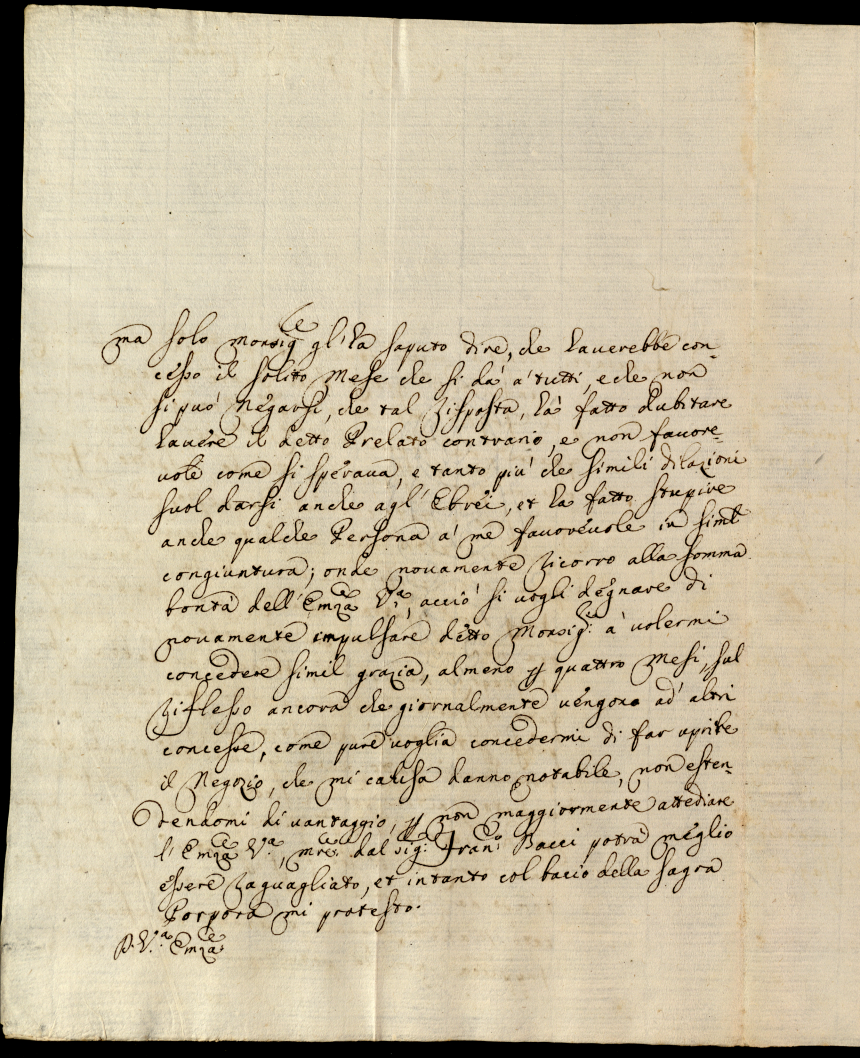 ma solo Monsig.re gl'ha saputo dire, che haverebbe con-
cesso il solito Mese che si dà a' tutti, e che non
si può Negarsi, che tal risposta, hà fatto dubitare
havere il detto Prelato contrario, e non favore-
vole come si sperava, e tanto più che simili dilazioni
suol darsi anche agl'Ebrei, et ha fatto stupire
anche qualche Persona a' me favorevole in simil
congiuntura; onde novamente ricorro alla somma
bontà dell'Emza V.ra, acciò si vogli degnare di
novamente impulsare detto Monsig.re a' volermi
concedere simil grazia, almeno p quattro Mesi, sul
riflesso ancora che giornalmente vengono ad' altri
concesse, come pure voglia concedermi di far aprire
il Negozio, che mi causa danno notabile, non esten-
dendomi di vantaggio, p non maggiormente attediare
l'Emza V.ra, mre dal Sig.r Fran.co Bacci potrà meglio
essere raguagliato, et intanto col bacio della Sagra
Porpora mi protesto.
D. V.ra Emza